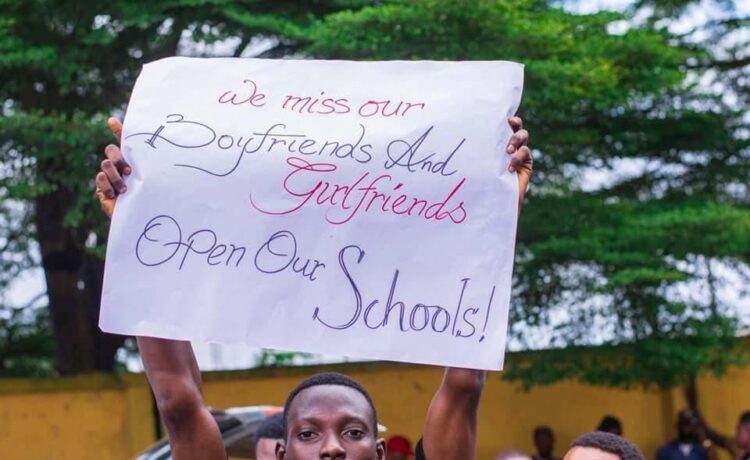 We miss our
Boyfriends And
Girlfriends
Open Our Schools!